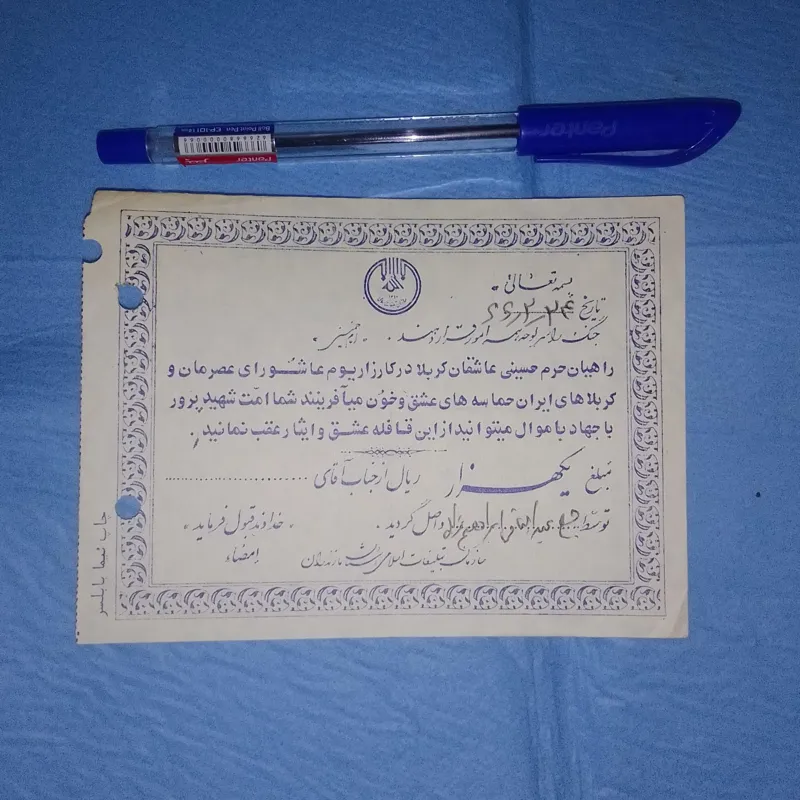 Penter
Ball Point Pen
Penter
بسمه تعالی
تاریخ ۶۶/۲/۲۴
جنگ را سرلوحه همه امور قرار دهند.
راهیان حرم حسینی عاشقان کربلا در کارزار یوم عاشورای عصرمان و
کربلاهای ایران حماسه های عشق و خون میآفرینند شما امت شهید پرور
با جهاد با موال میتوانید از این قافله عشق و ایثار عقب نمانید.
مبلغ یکهزار ریال از جناب آقای
توسط واصل گردید. ، خداوند قبول فرماید ،
سازمان تبلیغات اسلامی مازندران امضاء
چاپ نیما بابلسر